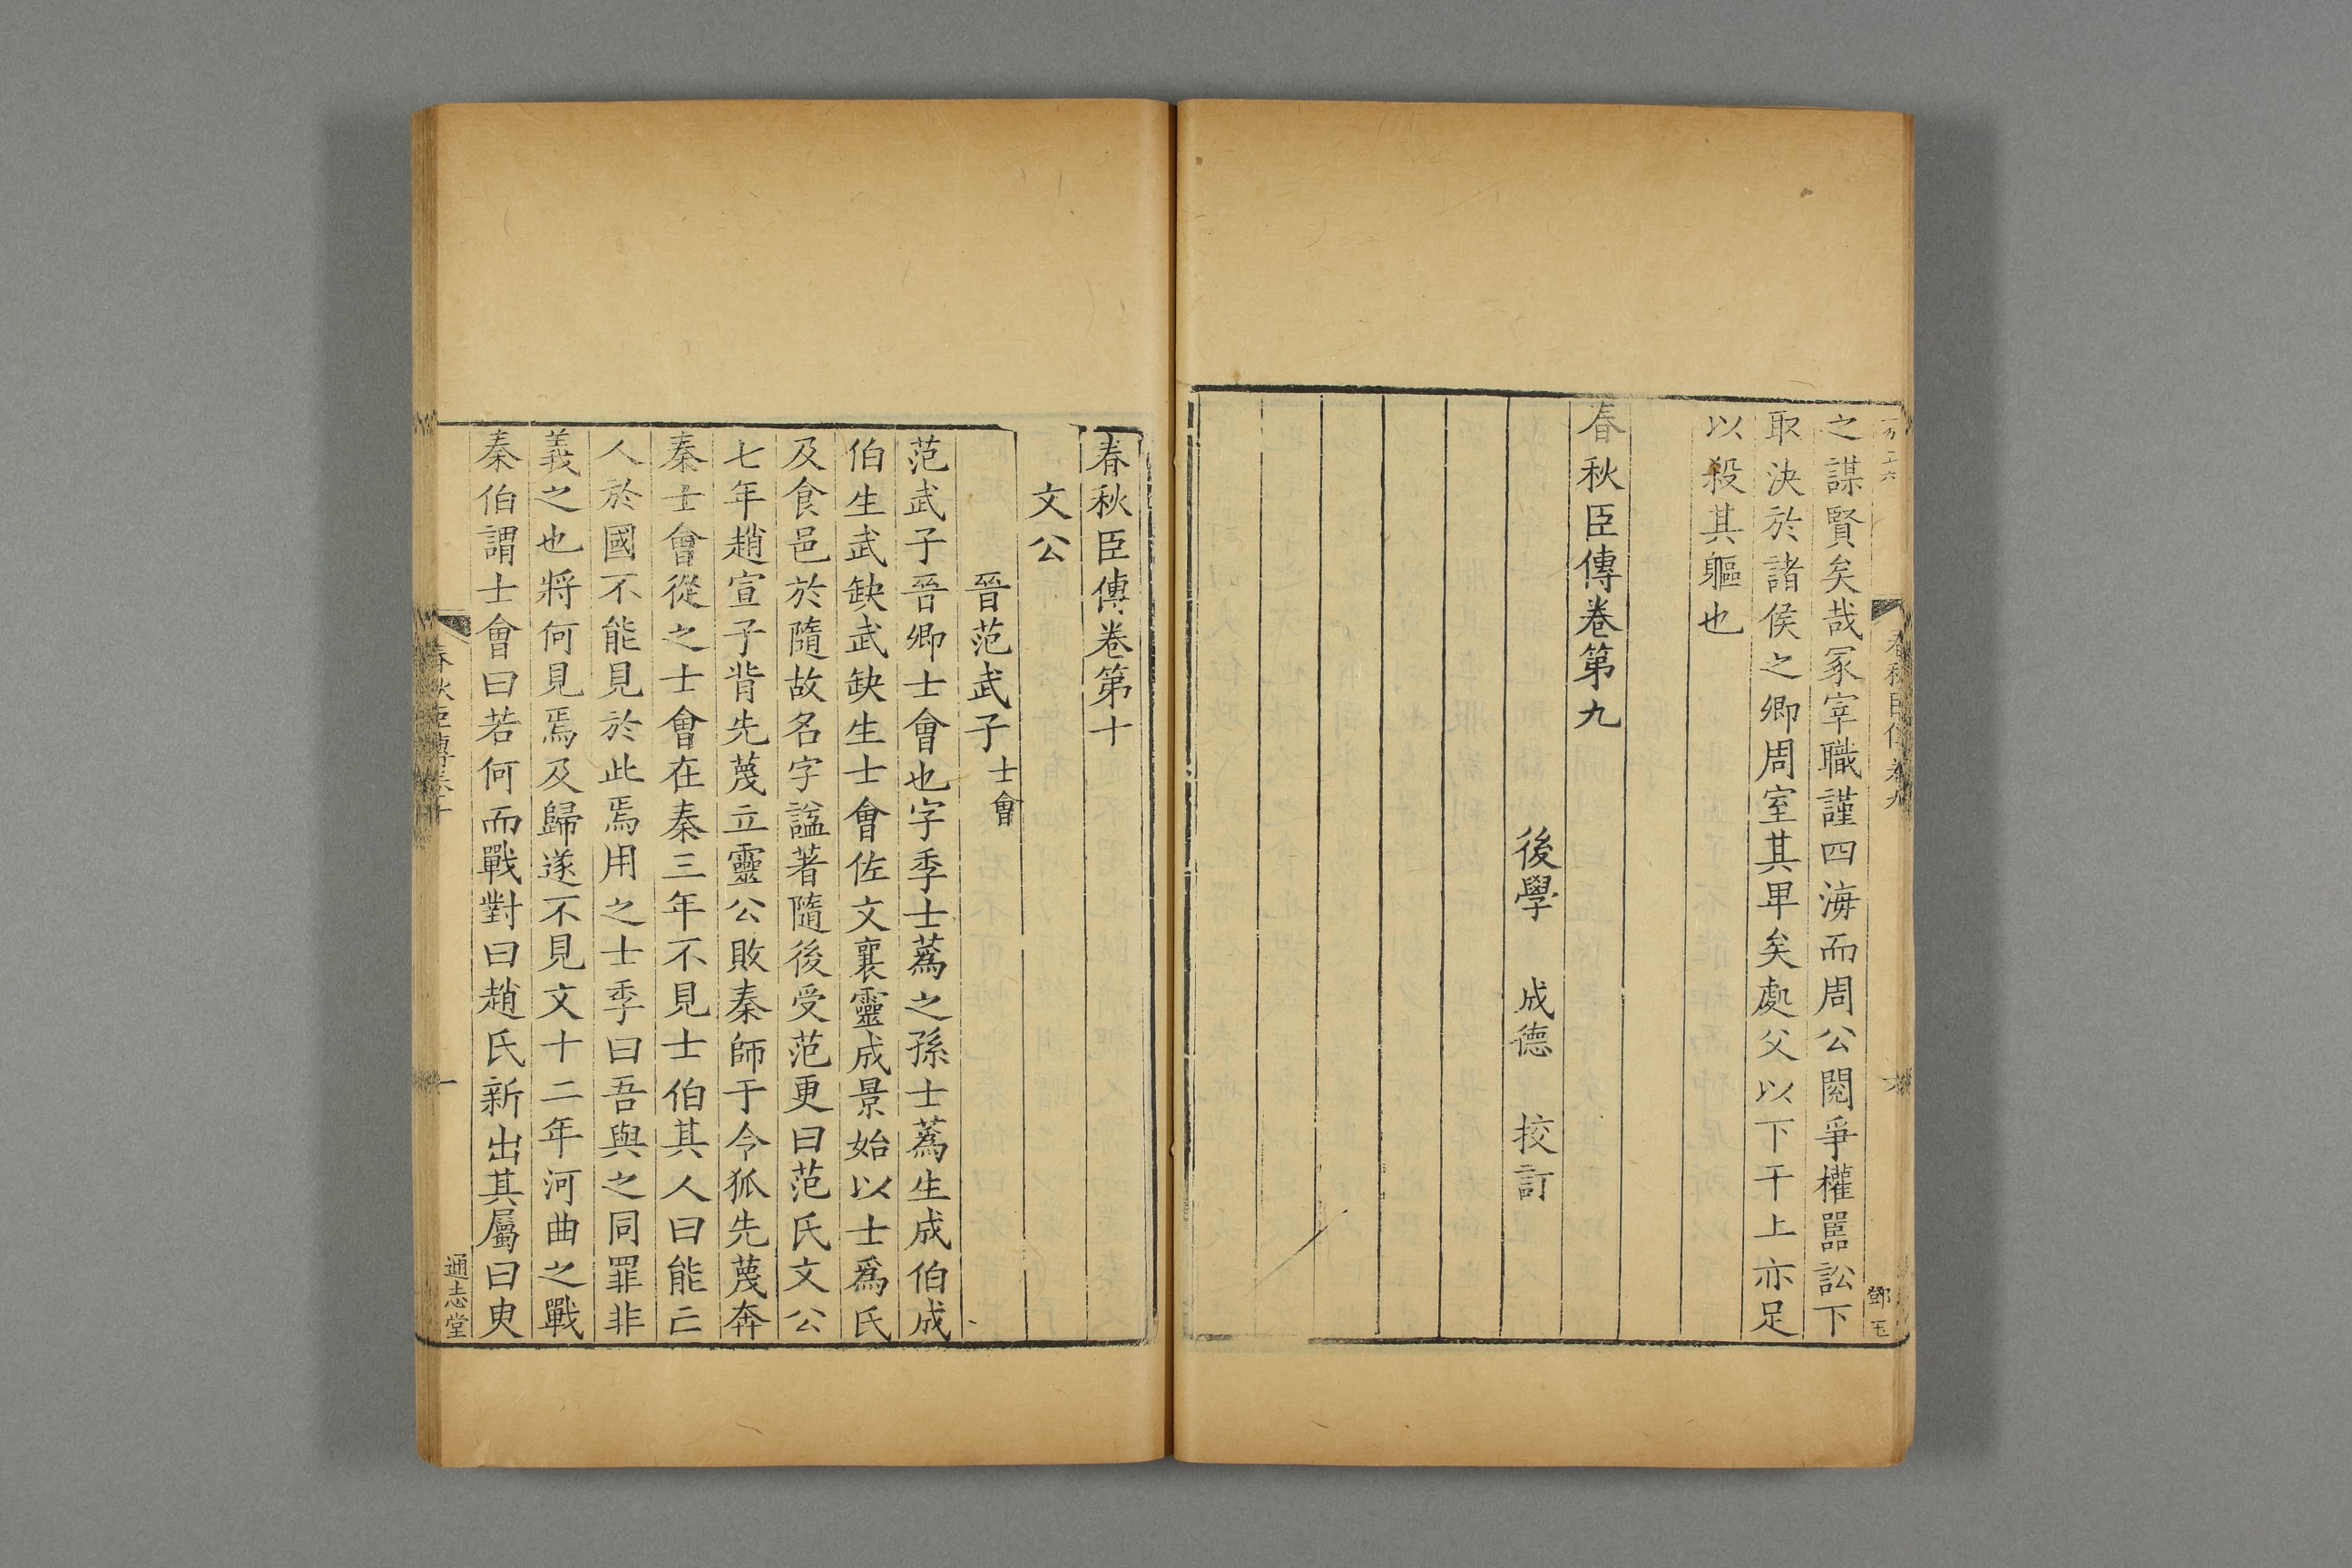 之謀賢矣哉冢宰職謹四海而周公閱爭權嚚訟下
取決於諸侯之卿周室其卑矣處父以下干上亦足
以殺其軀也
春秋臣傳卷第九
後學 成德 挍訂
春秋臣傳卷九
鄧玉
春秋臣傳卷第十
文公
晉范武子士會
范武子晉卿士會也字季士蒍之孫士蒍生成伯成
伯生武缺武缺生士會佐文襄靈成景始以士爲氏
及食邑於隨故名字諡著隨後受范更曰范氏文公
七年趙宣子背先蔑立靈公敗秦師于令狐先蔑奔
秦士會從之士會在秦三年不見士伯其人曰能亡
人於國不能見於此焉用之士季曰吾與之同罪非
義之也將何見焉及歸遂不見文十二年河曲之戰
秦伯謂士會曰若何而戰對曰趙氏新出其屬曰臾
春秋臣傳卷十
一
通志堂